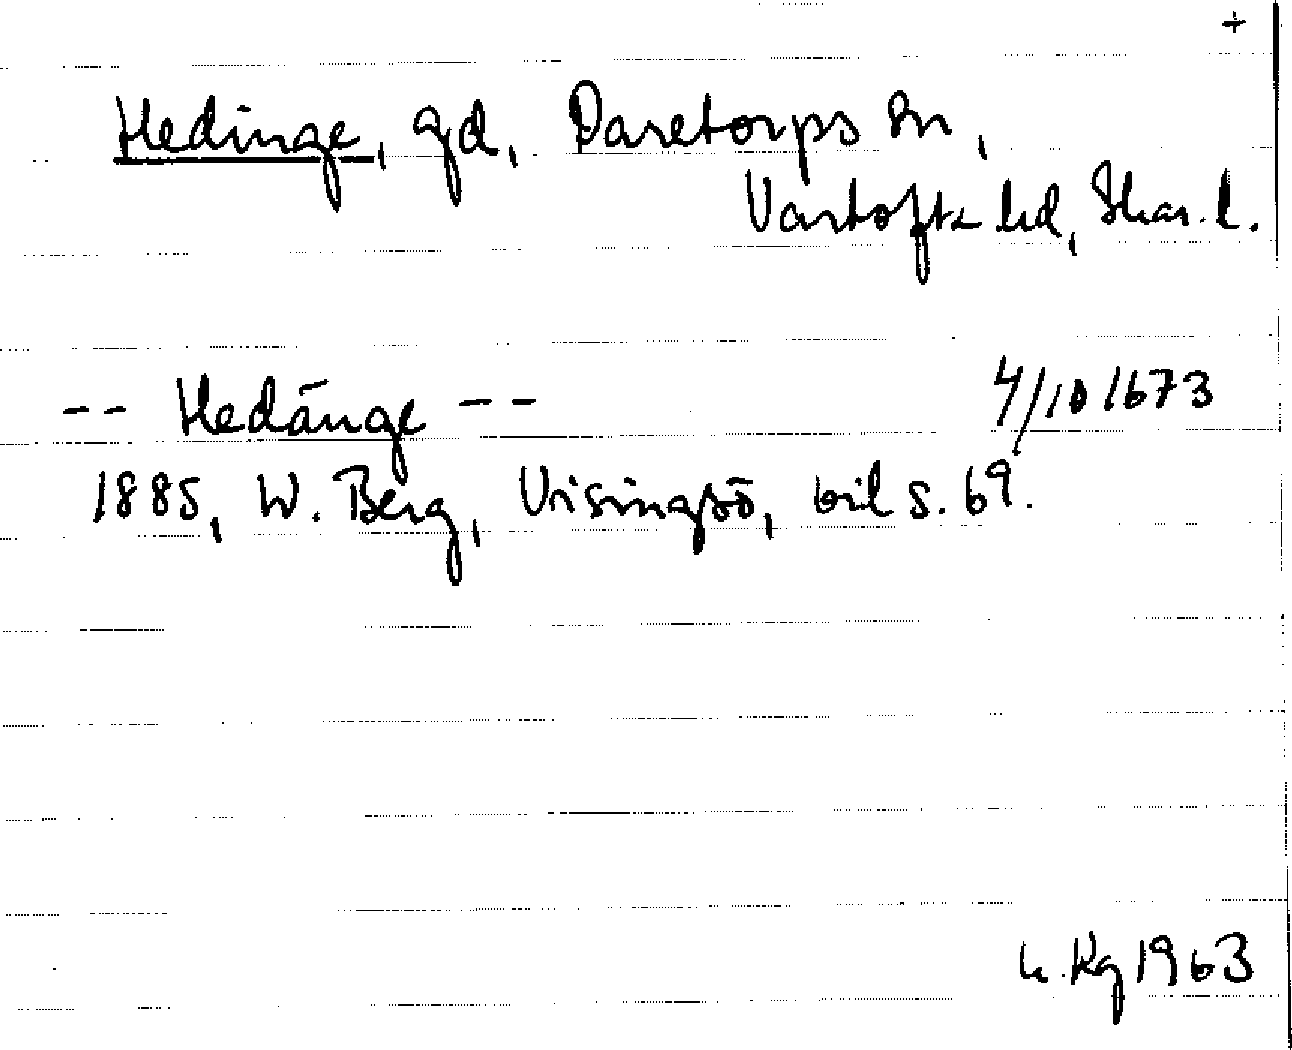 +
Hedinge, gd, Daretorps sn,
Vartofta hd, Skar. l.
-- Hedänge -- 4/10 1673
1885, W. Berg, Visingsö, bil s. 69.
h. Kg 1963